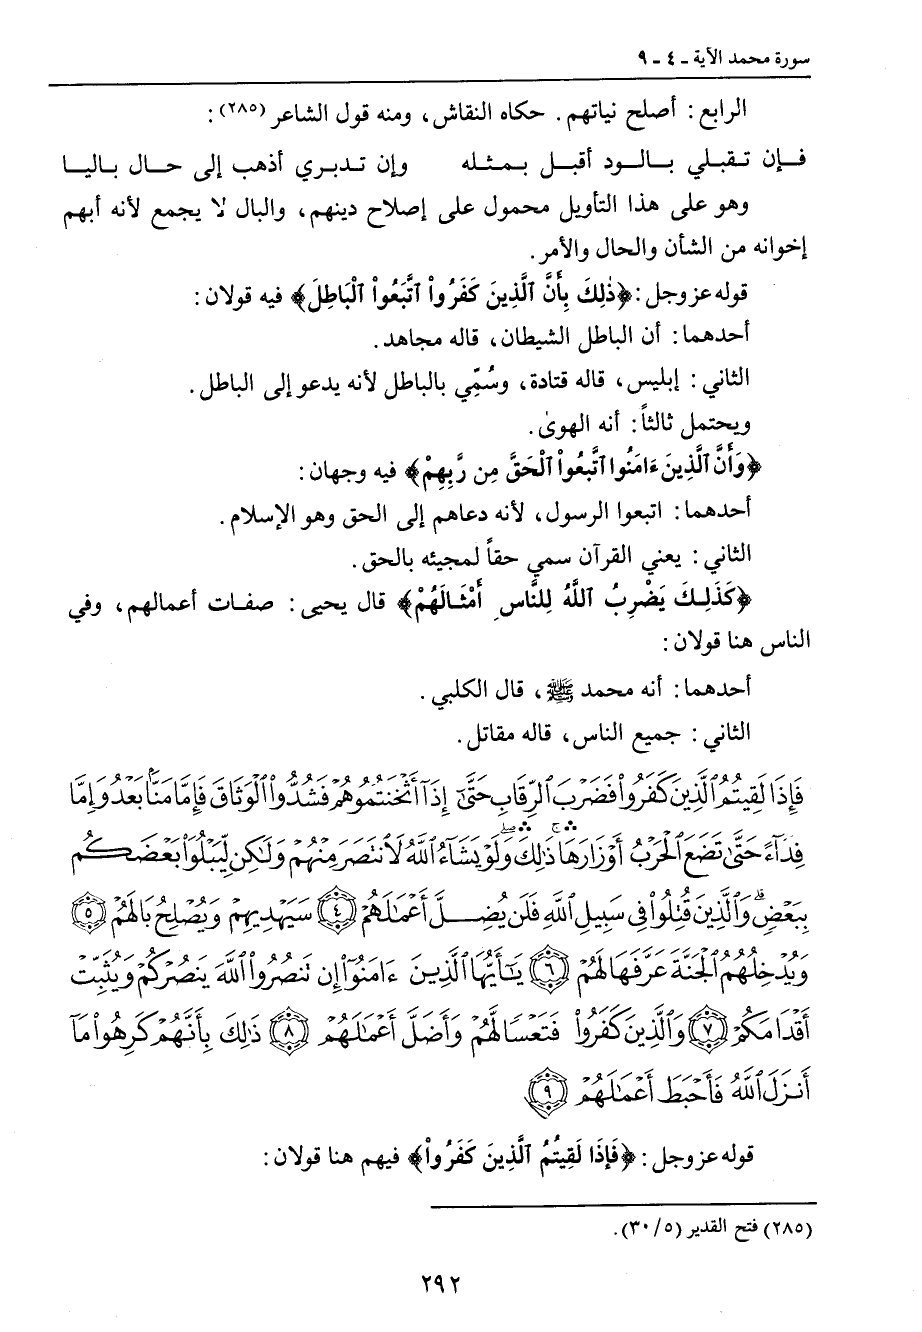 سورة محمد الآية ـ ٤ ـ ٩
الرابع: أصلح نياتهم. حكاه النقاش، ومنه قول الشاعر (٢٨٥):
فإن تقبلي بالود أقبل بمثله وإن تدبري أذهب إلى حال باليا
وهو على هذا التأويل محمول على إصلاح دينهم، والبال لا يجمع لأنه أبهم
إخوانه من الشأن والحال والأمر.
قوله عز وجل: ﴿ذَٰلِكَ بِأَنَّ ٱلَّذِينَ كَفَرُواْ ٱتَّبَعُواْ ٱلْبَاطِلَ﴾ فيه قولان:
أحدهما: أن الباطل الشيطان، قاله مجاهد.
الثاني: إبليس، قاله قتادة، وسُمِّي بالباطل لأنه يدعو إلى الباطل.
ويحتمل ثالثاً: أنه الهوىٰ.
﴿وَأَنَّ ٱلَّذِينَ ءَامَنُوا ٱتَّبَعُواْ ٱلْحَقَّ مِن رَّبِهِمْ﴾ فيه وجهان:
أحدهما: اتبعوا الرسول، لأنه دعاهم إلى الحق وهو الإسلام.
الثاني: يعني القرآن سمي حقاً لمجيئه بالحق.
﴿كَذَلِكَ يَضْرِبُ ٱللَّهُ لِلنَّاسِ أَمْثَالَهُمْ﴾ قال يحيى: صفات أعمالهم، وفي
الناس هنا قولان:
أحدهما: أنه محمد ﷺ، قال الكلبي.
الثاني: جميع الناس، قاله مقاتل.
فَإِذَا لَقِيتُمُ ٱلَّذِينَ كَفَرُواْ فَضَرْبَ ٱلرِّقَابِ حَتَّىٰٓ إِذَآ أَثْخَنتُمُوهُمْ فَشُدُّواْ ٱلْوَثَاقَ فَإِمَّا مَنَّۢا بَعْدُ وَإِمَّا
فِدَآءً حَتَّىٰ تَضَعَ ٱلْحَرْبُ أَوْزَارَهَا ۚ ذَٰلِكَ ۖ وَلَوْ يَشَآءُ ٱللَّهُ لَٱنتَصَرَ مِنْهُمْ وَلَٰكِن لِّيَبْلُوَاْ بَعْضَكُم
بِبَعْضٍ ۗ وَٱلَّذِينَ قُتِلُواْ فِى سَبِيلِ ٱللَّهِ فَلَن يُضِلَّ أَعْمَٰلَهُمْ ﴿٤﴾ سَيَهْدِيهِمْ وَيُصْلِحُ بَالَهُمْ ﴿٥﴾
وَيُدْخِلُهُمُ ٱلْجَنَّةَ عَرَّفَهَا لَهُمْ ﴿٦﴾ يَٰٓأَيُّهَا ٱلَّذِينَ ءَامَنُوٓاْ إِن تَنصُرُواْ ٱللَّهَ يَنصُرْكُمْ وَيُثَبِّتْ
أَقْدَامَكُمْ ﴿٧﴾ وَٱلَّذِينَ كَفَرُواْ فَتَعْسًا لَّهُمْ وَأَضَلَّ أَعْمَٰلَهُمْ ﴿٨﴾ ذَٰلِكَ بِأَنَّهُمْ كَرِهُواْ مَآ
أَنزَلَ ٱللَّهُ فَأَحْبَطَ أَعْمَٰلَهُمْ ﴿٩﴾
قوله عز وجل: ﴿فَإِذَا لَقِيتُمُ ٱلَّذِينَ كَفَرُواْ﴾ فيهم هنا قولان:
(٢٨٥) فتح القدير (٥/ ٣٠).
٢٩٢